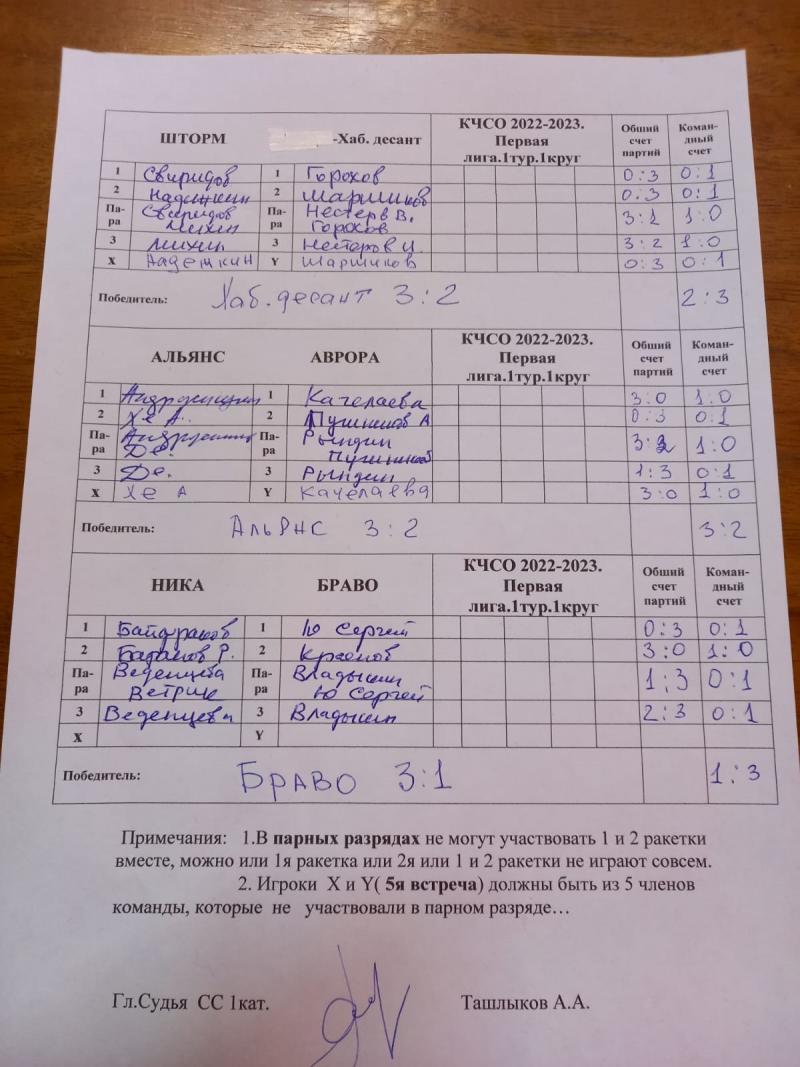 ШТОРМ -Хаб. десант КЧСО 2022-2023. Первая лига.1тур.1круг Общий счет партий Коман-дный счет
1 Свиридов 1 Горохов 0:3 0:1
2 Надежкин 2 Маршиков 0:3 0:1
Па-ра Свиридов Михин Па-ра Нестеров В. Горохов 3:1 1:0
3 Михин 3 Нестеров И. 3:2 1:0
X Надежкин Y Маршиков 0:3 0:1
Победитель: Хаб.десант 3:2 2:3
АЛЬЯНС АВРОРА КЧСО 2022-2023. Первая лига.1тур.1круг Общий счет партий Коман-дный счет
1 1 Качелаева 3:0 1:0
2 Хе А. 2 Пушников А 0:3 0:1
Па-ра Де. Па-ра Рындин Пушников 3:2 1:0
3 Де. 3 Рындин 1:3 0:1
X Хе А Y Качелаева 3:0 1:0
Победитель: Альянс 3:2 3:2
НИКА БРАВО КЧСО 2022-2023. Первая лига.1тур.1круг Общий счет партий Коман-дный счет
1 1 Ю Сергей 0:3 0:1
2 Р. 2 Краснов 3:0 1:0
Па-ра Па-ра Владыкин Ю Сергей 1:3 0:1
3 Веденцева 3 Владыкин 2:3 0:1
X Y
Победитель: Браво 3:1 1:3
Примечания: 1.В парных разрядах не могут участвовать 1 и 2 ракетки
вместе, можно или 1я ракетка или 2я или 1 и 2 ракетки не играют совсем.
2. Игроки X и Y( 5я встреча) должны быть из 5 членов
команды, которые не участвовали в парном разряде…
Гл.Судья СС 1кат. Ташлыков А.А.